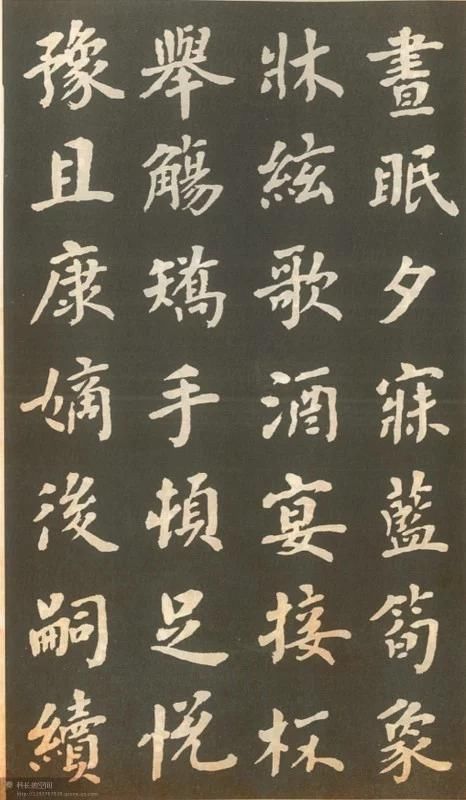 晝眠夕寐藍筍象
牀絃歌酒宴接杯
舉觴矯手頓足悅
豫且康嫡後嗣續